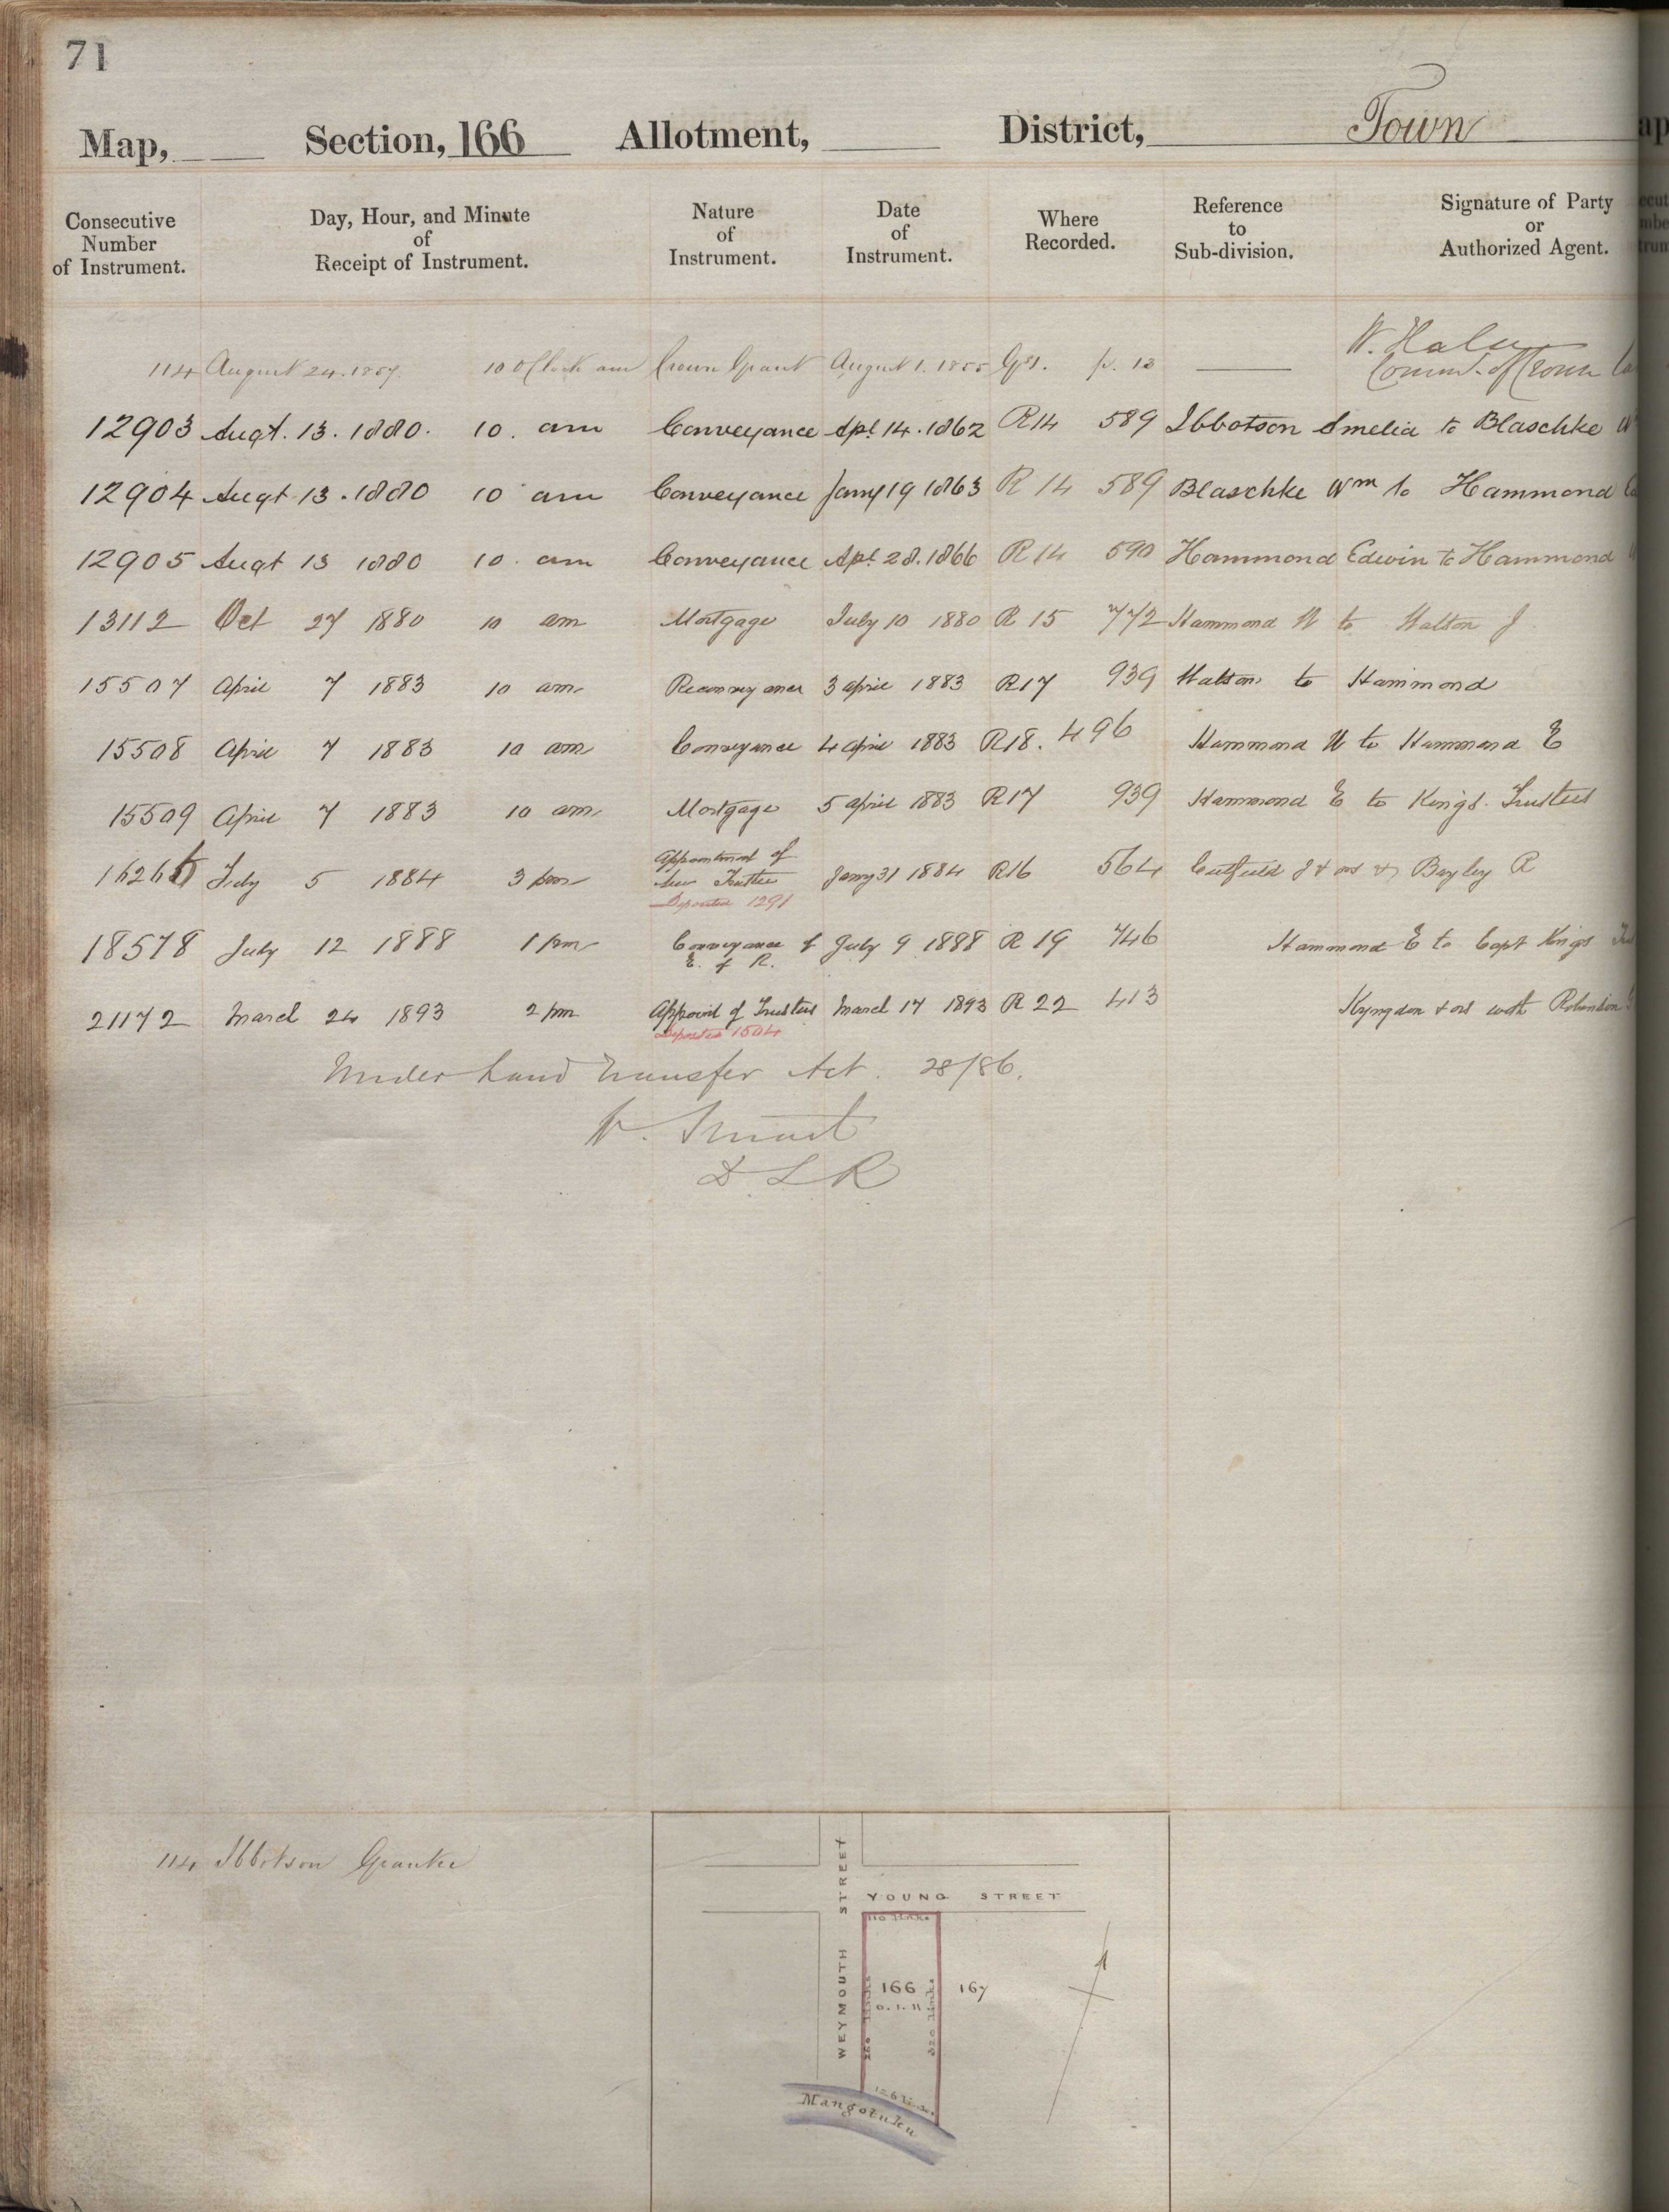 71
Map, Section, 166 Allotment, District, Town
Consecutive Number of Instrument. Day, Hour, and Minute of Receipt of Instrument. Nature of Instrument. Date of Instrument. Where Recorded. Reference to Sub-division. Signature of Party or Authorized Agent.
W. Halse
114 August 24. 1857. 10 O'Clock am Crown Grant August 1. 1855 G1. p. 13 Commr. of Crown
12903 Augt. 13. 1880. 10. am Conveyance Apl. 14. 1862 R14 589 Ibbotson Amelia to Blaschke
12904 Augt 13. 1880 10 am Conveyance Jany 19 1863 R 14 589 Blaschke Wm to Hammond
12905 Augt 13 1880 10. am Conveyance Apl. 28. 1866 R 14 590 Hammond Edwin to Hammond
13112 Oct 27 1880 10 am Mortgage July 10 1880 R 15 772 Hammond W to J
15507 April 7 1883 10 am Reconveyance 3 april 1883 R17 939 to Hammond
15508 April 7 1883 10 am Conveyance 4 april 1883 R18. 496 Hammond W to Hammond E
15509 April 7 1883 10 am Mortgage 5 april 1883 R17 939 Hammond E to Kings Trustees
Appointment of
July 5 1884 3 pm New Trustee Jany 31 1884 R16 564 Cutfield J & ors to Bayley R
Deposited 1291
18578 July 12 1888 1 pm Conveyance of July 9 1888 R 19 746 Hammond E to Capt Kings
E. of R.
21172 March 24 1893 2 pm Appoint of Trustees March 17 1893 R 22 413 Kyngdon & ors with Robinson
Deposited 1504
Under Land Transfer Act. 28/86.
W. Stuart
D L R
114 Ibbotson Grantee
WEYMOUTH STREET
YOUNG STREET
110 links
166
0. 1. 11
167
320 links
126 links
Mangotuku